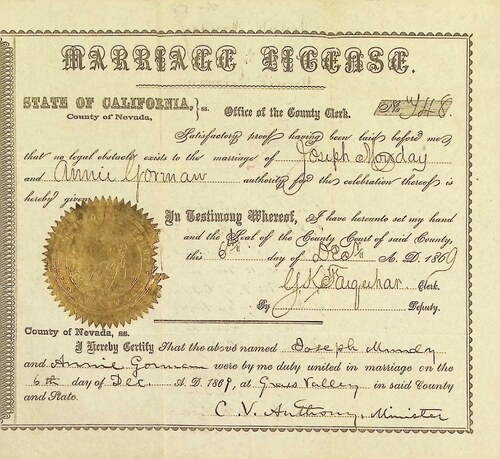 MARRIAGE LICENSE.
STATE OF CALIFORNIA, } ss. Office of the County Clerk. No 748.
County of Nevada,
Satisfactory proof having been laid before me
that no legal obstacle exists to the marriage of Joseph Monday
and Annie Gorman authority for the celebration thereof is
hereby given.
In Testimony Whereof, I have hereunto set my hand
and the Seal of the County Court of said County,
this 6th day of Dec A. D. 1869
Farquhar. Clerk.
By Deputy.
County of Nevada, ss.
I Hereby Certify That the above named Joseph Mundy
and Annie Gorman were by me duly united in marriage on the
6th day of Dec. A. D. 1869, at Grass Valley in said County
and State.
C. V. Anthony, Minister